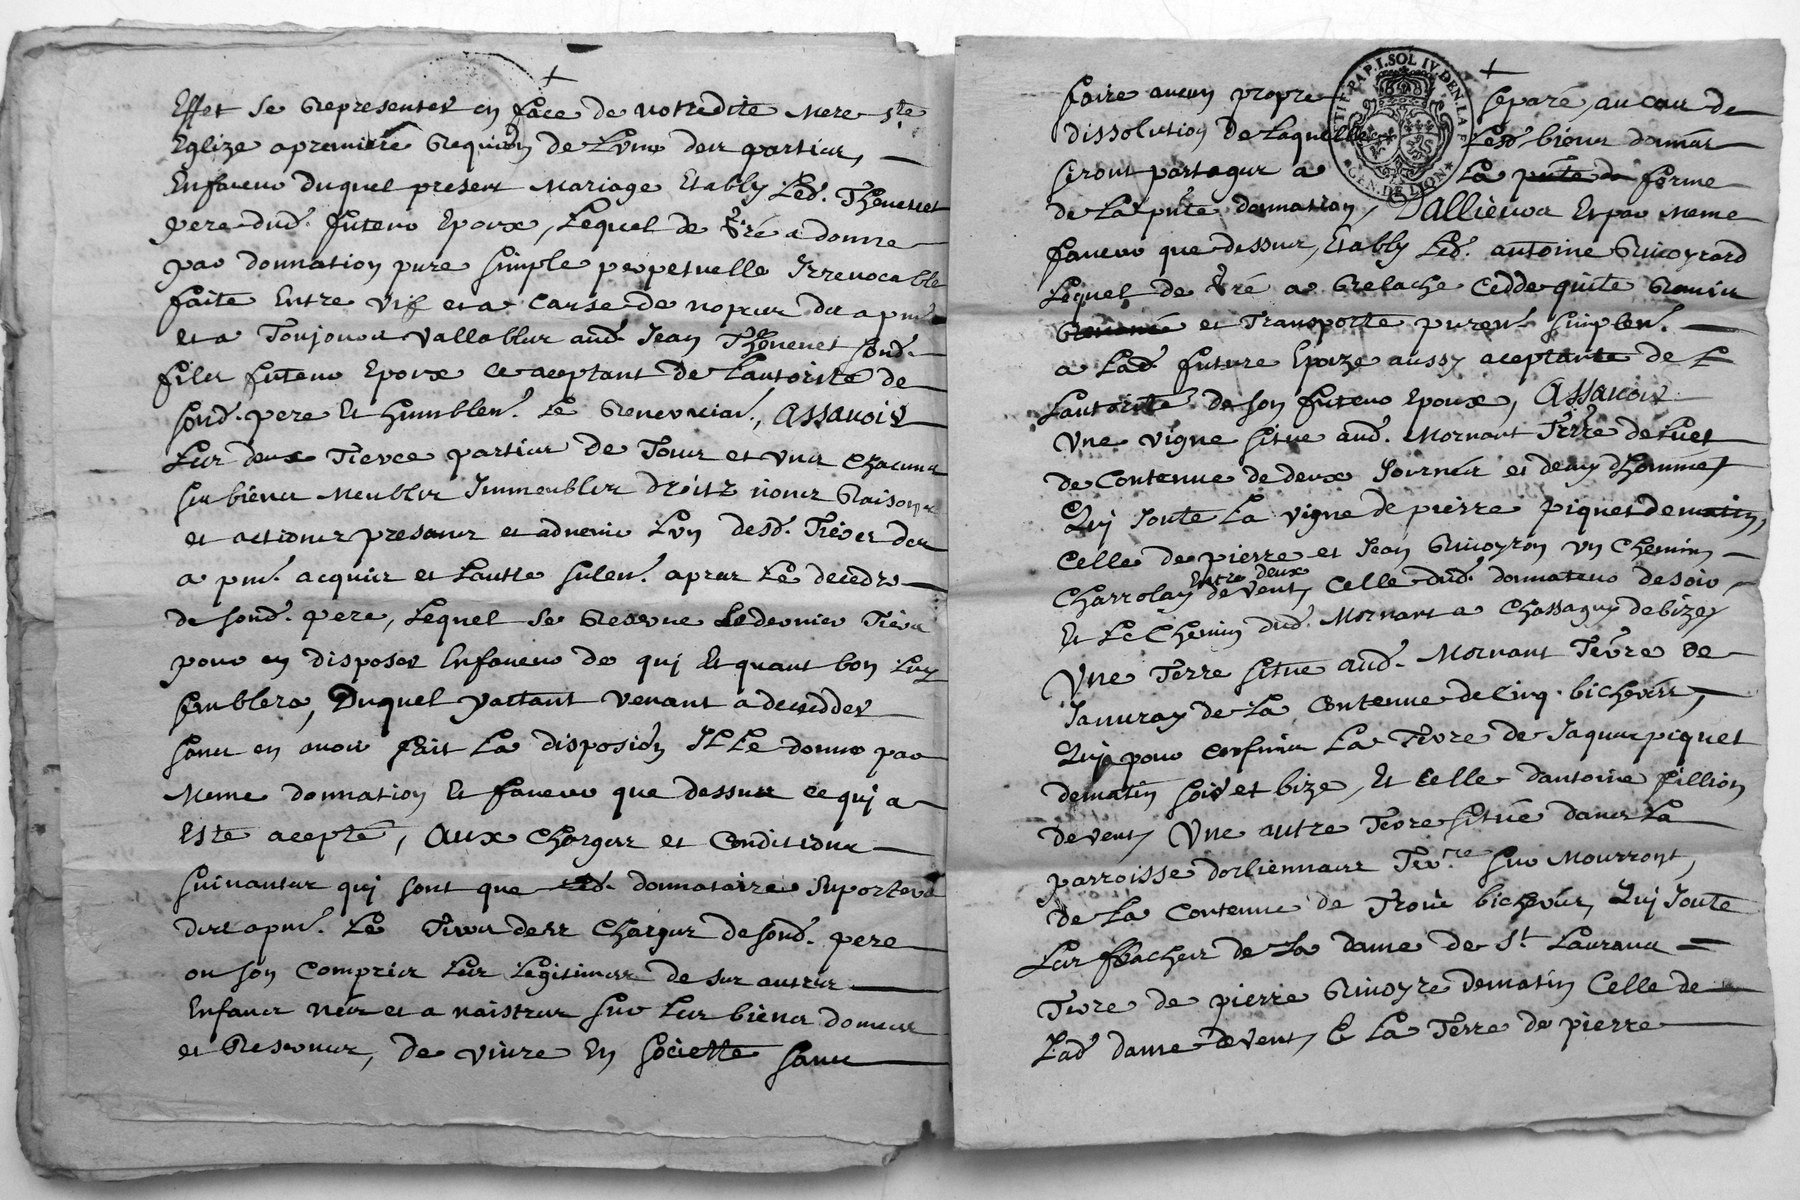 Effet se Representer en face de notredite mere ste
Eglize a premiere Requion de Lune des parties,
En faveur duquel present mariage Etably Led. Thevenet
pere dud. futeur Epoux, Lequel de gré a donne
par donnation pure simple perpetuelle Irrevocable
faite Entre vif et a Cause de nopces des a pnt
et a Toujours vallables aud. Jean Thevenet sond.
fils futeur Epoux ce aceptant de Lautorité de
sond. pere Et humblemt. Le Remerciant, Assavoir
Les deux Tierce parties de Tous et uns Chacuns
ses biens meubles Immeubles droitz noms Raisons
et actions presans et advenir Lun desd. Tiers des
a pnt. acquis et Lautre sulemt. apres Le decedz
de sond. pere, Lequel se Reserve Le dernier Tiers
pour en disposer En faveur de qui Et quant bon Luy
semblera, Duquel partant venant a decedder
sans en avoir fait La disposion IL Le donne par
meme donnation Et faveur que dessus ce qui a
Este acepté, aux charges et Conditions
suivantes qui sont que Led. donnataire suportera
des a pnt. Le Tiers des Charges de sond. pere
ou son Compris Les Legitimes de ses autres
Enfans nés et a naistres sur Les biens donnés
et Reservés, de vivre En societte sans
faire aucun propre separé, au cas de
dissolution de Laquelle Lesd biens donnés
seront partagés a La forme
de La pnte donnation, Dallieurs Et par meme
faveur que dessus, Etably Led. antoine Rivoyrard
Lequel de gré a Relache Cedde quite Remis
et Transporte puremt. simplemt.
a Lad. future Epouze aussy aceptante de L
Lautorité de son futeur Epoux, Assavoir
Une vigne situe aud. Mornant Terre de
de Contenue de deux Journés et demy dhommes
Qui Joute La vigne de pierre piquet de matin,
Celle de pierre et Jean Rivoyron un Chemin
Charrolay Entre deux de vent, Celle dud. donnateur de soir
Et Le Chemin dud. Mornant a Chassagny de bize,
Une Terre situe aud. Mornant Terre de
Jamuray de La Contenue de Cinq bicherés,
Qui a pour confins La Terre de Jaques piquet
de matin soir et bize, Et Celle dantoine fillion
de vent, Une autre Terre située dans La
parroisse dorliennaire Terre sur Mourront,
de La Contenue de Trois bicherés, Qui Joute
Les de La dame de St Laurans
Terre de pierre Rivoyre de matin Celle de
Lad. dame de vent, & La Terre de pierre
TIF. PAP. I. SOL IV. DEN. LA F.
GEN. DE LION